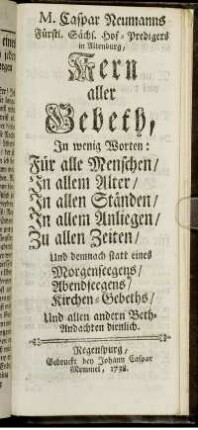 M. Caspar Neumanns
Fürstl. Sächs. Hof-Predigers
in Altenburg,
Kern
aller
Gebeth,
In wenig Worten:
Für alle Menschen/
In allem Alter/
In allen Ständen/
In allem Anliegen/
Zu allen Zeiten/
Und demnach statt eines
Morgenseegens/
Abendseegens/
Kirchen-Gebeths/
Und allen andern Beth-
Andachten dienlich.
Regenspurg,
Gedruckt bey Johann Caspar
Memmel, 1738.